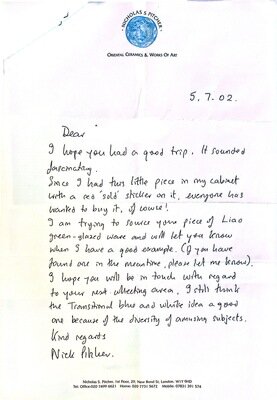 NICHOLAS S. PITCHER
ORIENTAL CERAMICS & WORKS OF ART
5.7.02.
Dear
I hope you had a good trip. It sounded
fascinating.
Since I had this little piece in my cabinet
with a red 'sold' sticker on it, everyone has
wanted to buy it, of course!
I am trying to source your piece of Liao
green-glazed ware and will let you know
when I have a good example. (If you have
found one in the meantime, please let me know).
I hope you will be in touch with regard
to your next collecting area. I still think
the Transitional blue and white idea a good
one because of the diversity of amusing subjects.
Kind regards
Nick Pitcher.
Nicholas S. Pitcher, 1st Floor, 29, New Bond St, London, W1Y 9HD
Tel: Office: 020 7499 6621 Home: 020 7731 5672 Mobile: 07831 391 574